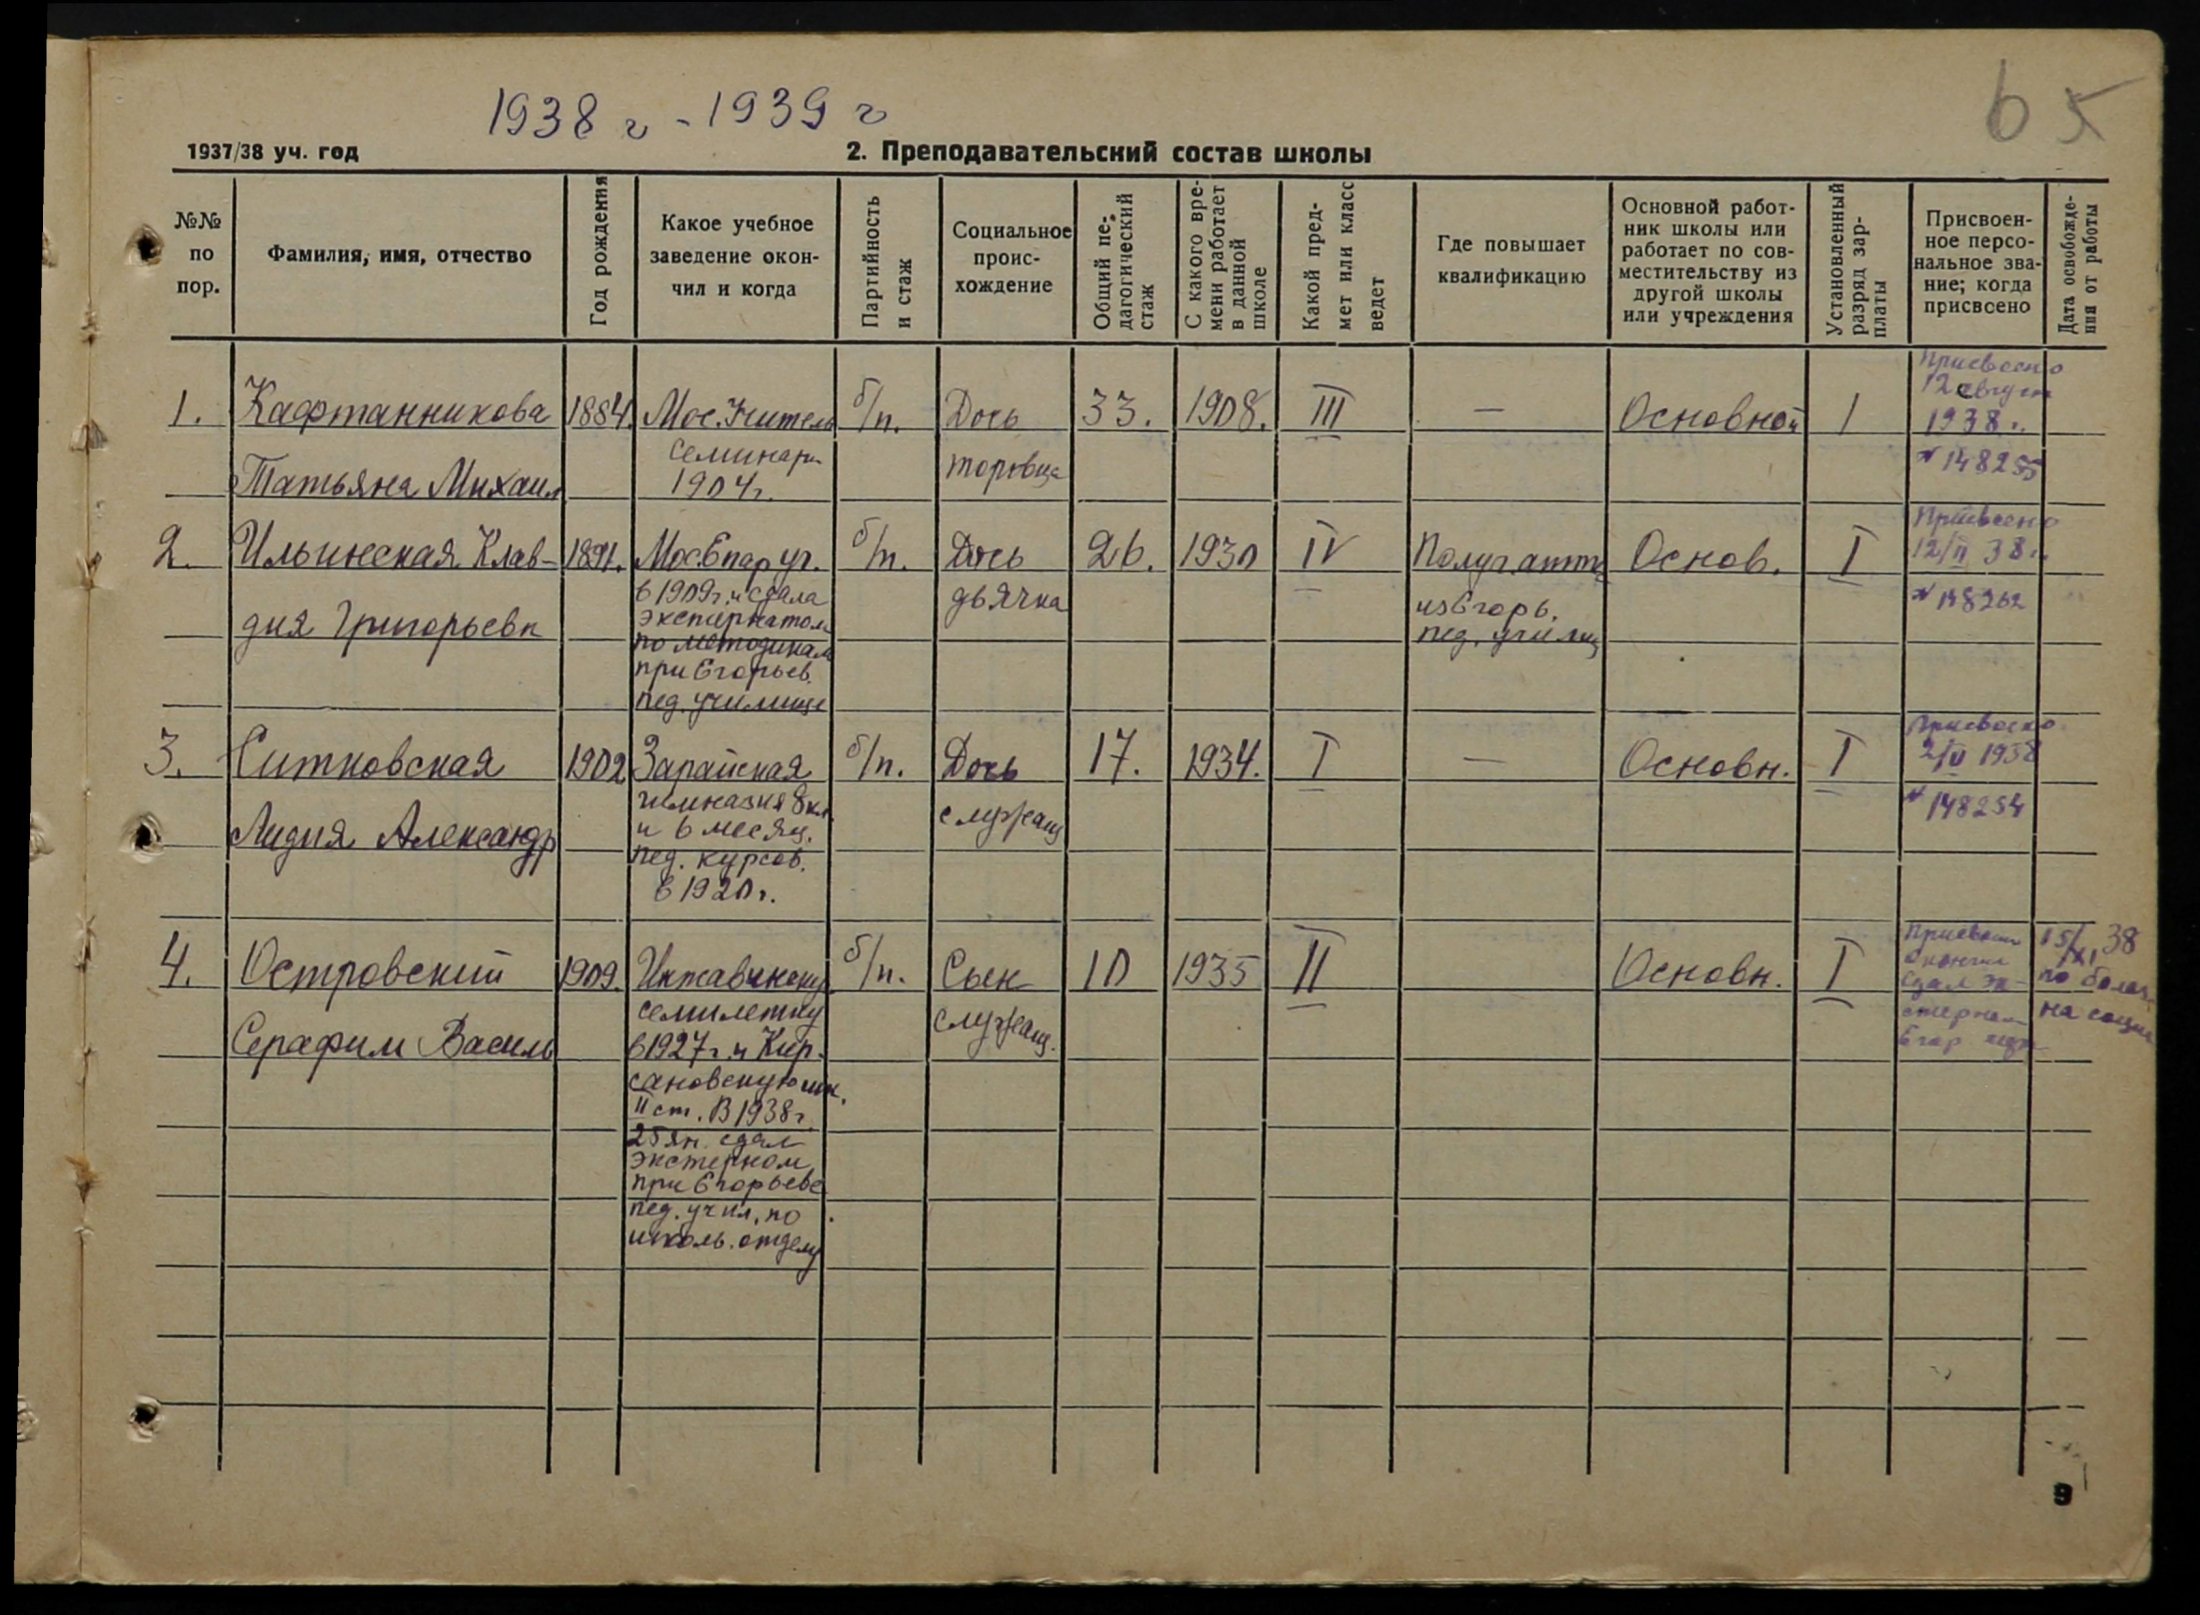 1938 г - 1939 г
65
1937/38 уч. год
2. Преподавательский состав школы
№№
по
пор.
Фамилия, имя, отчество
Год рождения
Какое учебное
заведение окон-
чил и когда
Партийность
и стаж
Социальное
проис-
хождение
Общий пе-
дагогический
стаж
С какого вре-
мени работает
в данной
школе
Какой пред-
мет или класс
ведет
Где повышает
квалификацию
Основной работ-
ник школы или
работает по сов-
местительству из
другой школы
или учреждения
Установленный
разряд зар-
платы
Присвоен-
ное персо-
нальное зва-
ние; когда
присвоено
Дата освобожде-
ния от работы
1.
Кафтанникова
Татьяна Михаил
1884.
Мос. Учитель
семинар.
1904г.
б/п.
Дочь
торговца
33.
1908.
III
—
Основной
I
Присвоено
12 август
1938г.
№ 148255
2.
Ильинская Клав-
дия Григорьевн
1891.
Мос. Епар уч.
в 1909г. и сдала
экстернатом
по методикам
при Егорьев.
пед. училище
б/п.
Дочь
дьячка
26.
1930
IV
Получ. атт.
из Егорь.
пед. училищ
Основ.
I
Присвоено
12/II 38г.
№ 148262
3.
Ситковская
Лидия Александр
1902
Зарайская
гимназия 8 кл.
и 6 месяц.
пед. курсов.
в 1920г.
б/п.
Дочь
служащ
17.
1934.
I
—
Основн.
I
Присвоено
1938
№ 148254
4.
Островский
Серафим Василь
1909.
семилетку
в 1927г. и Кир-
сановскую шк.
II ст. В 1938г.
25 ян. сдал
экстерном
при Егорьевс
пед. учил. по
школь. отделу
б/п.
Сын
служащ.
10
1935
II
Основн.
I
сдал эк-
стерном
Егор
38
по болез.
на
9